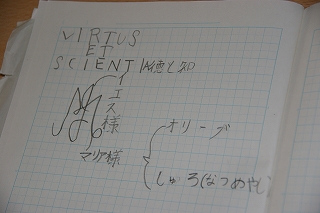 VIRTUS
ET
SCIENTIA 徳と知
イエス様
マリア様
オリーブ
しゅろ(なつめやし)